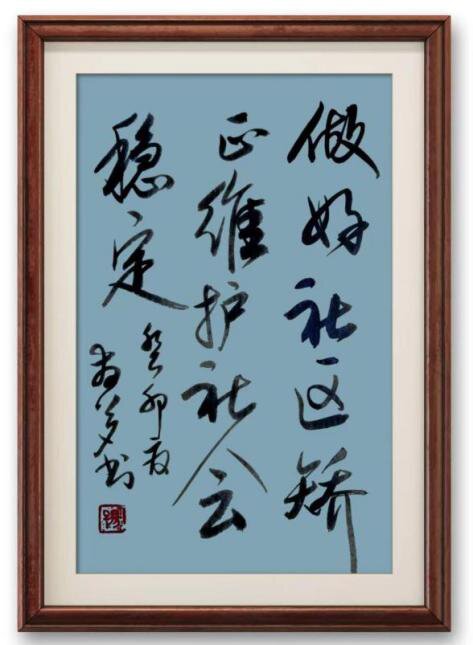 做好社区矫
正维护社会
稳定
癸卯夏